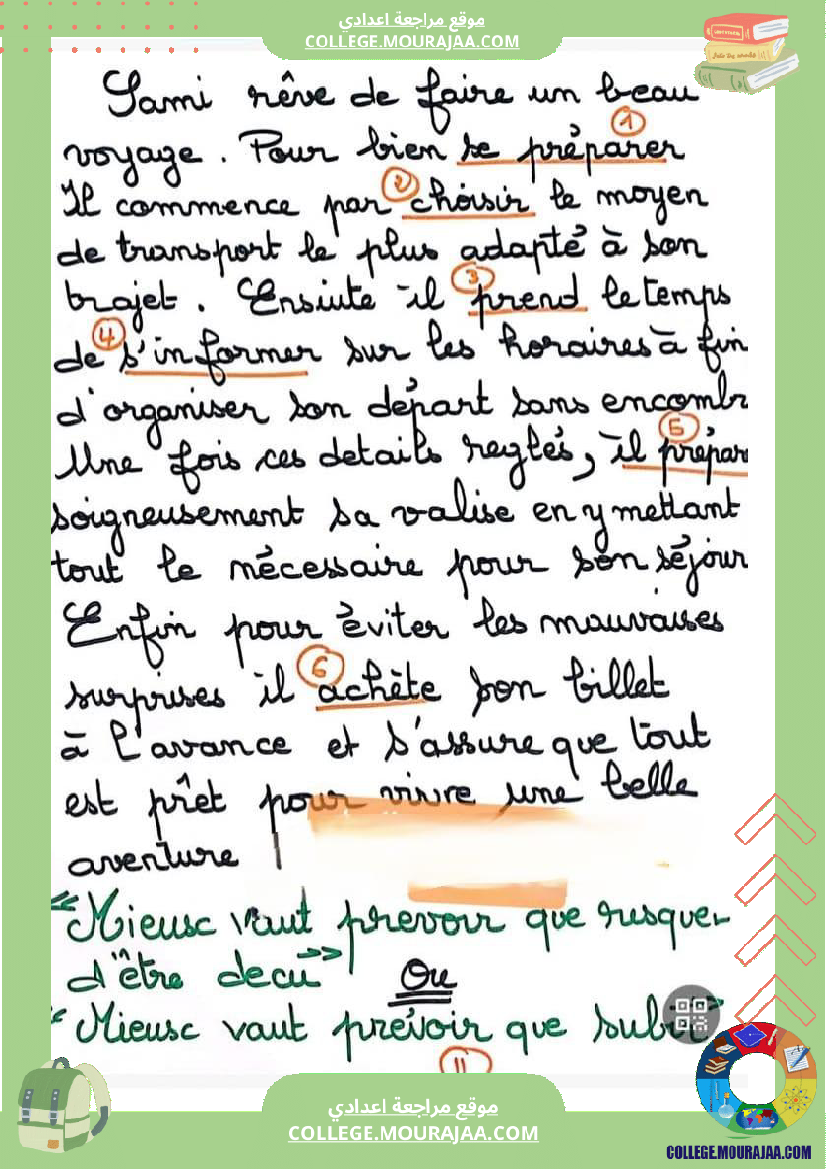 موقع مراجعة اعدادي
COLLEGE.MOURAJAA.COM
Sami rêve de faire un beau
1
voyage. Pour bien se préparer
2
Il commence par choisir le moyen
de transport le plus adapté à son
3
trajet. Ensiute il prend le temps
4
de s'informer sur les horaires à fin
d'organiser son départ sans encombr
5
Une fois ces details reglés, il prépar
soigneusement sa valise en y mettant
tout le nécessaire pour son séjour
Enfin pour éviter les mauvaises
6
surprises il achète son billet
à l'avance et s'assure que tout
est prêt pour vivre une belle
aventure
"Mieux vaut prevoir que risquer
d'être decu" Ou
"Mieux vaut prévoir que subir"
11
موقع مراجعة اعدادي
COLLEGE.MOURAJAA.COM
COLLEGE.MOURAJAA.COM